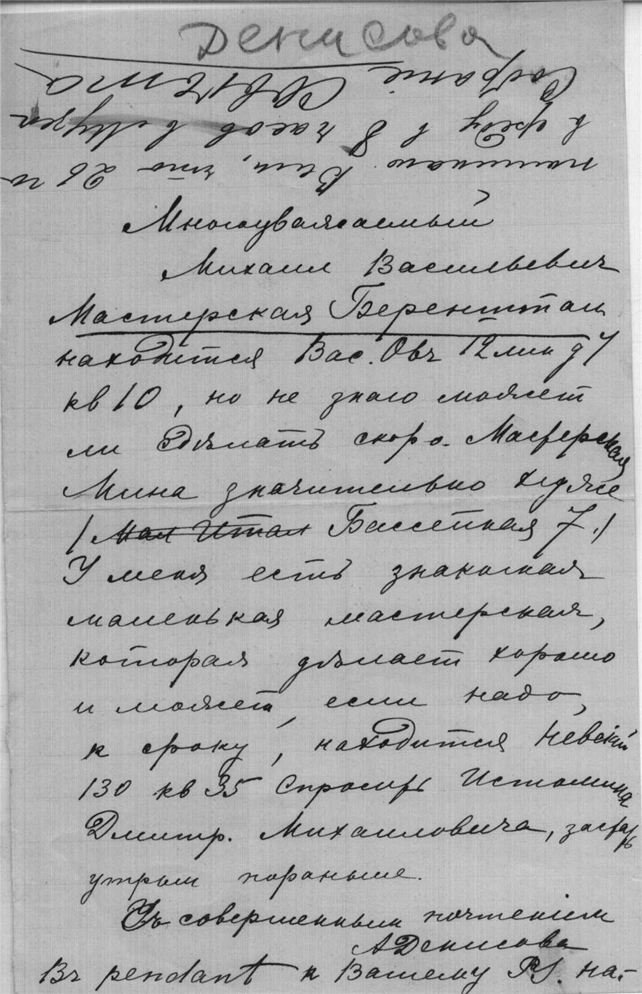 Денисова
Многоуважаемый
Михаил Васильевич
Мастерская Беренштам
находится Вас. Овъ 12 лин д 7
кв 10, но не знаю может
ли сдѣлать скоро. Мастерская
Мина значительно хуже
/ Мал Итал Бассейная 7./
У меня есть знакомая
маленькая мастерская,
которая дѣлает хорошо
и может, если надо,
к сроку, находится Невский
130 кв 35 спросить Истомина
Дмитр. Михаиловича, застать
утром пораньше.
Съ совершенным почтенiем
АДенисова
Въ pendant к Вашему PS. на-
поминаю Вам, что 26 и
в среду в 8 часов в Музе
Собранiе Совѣта